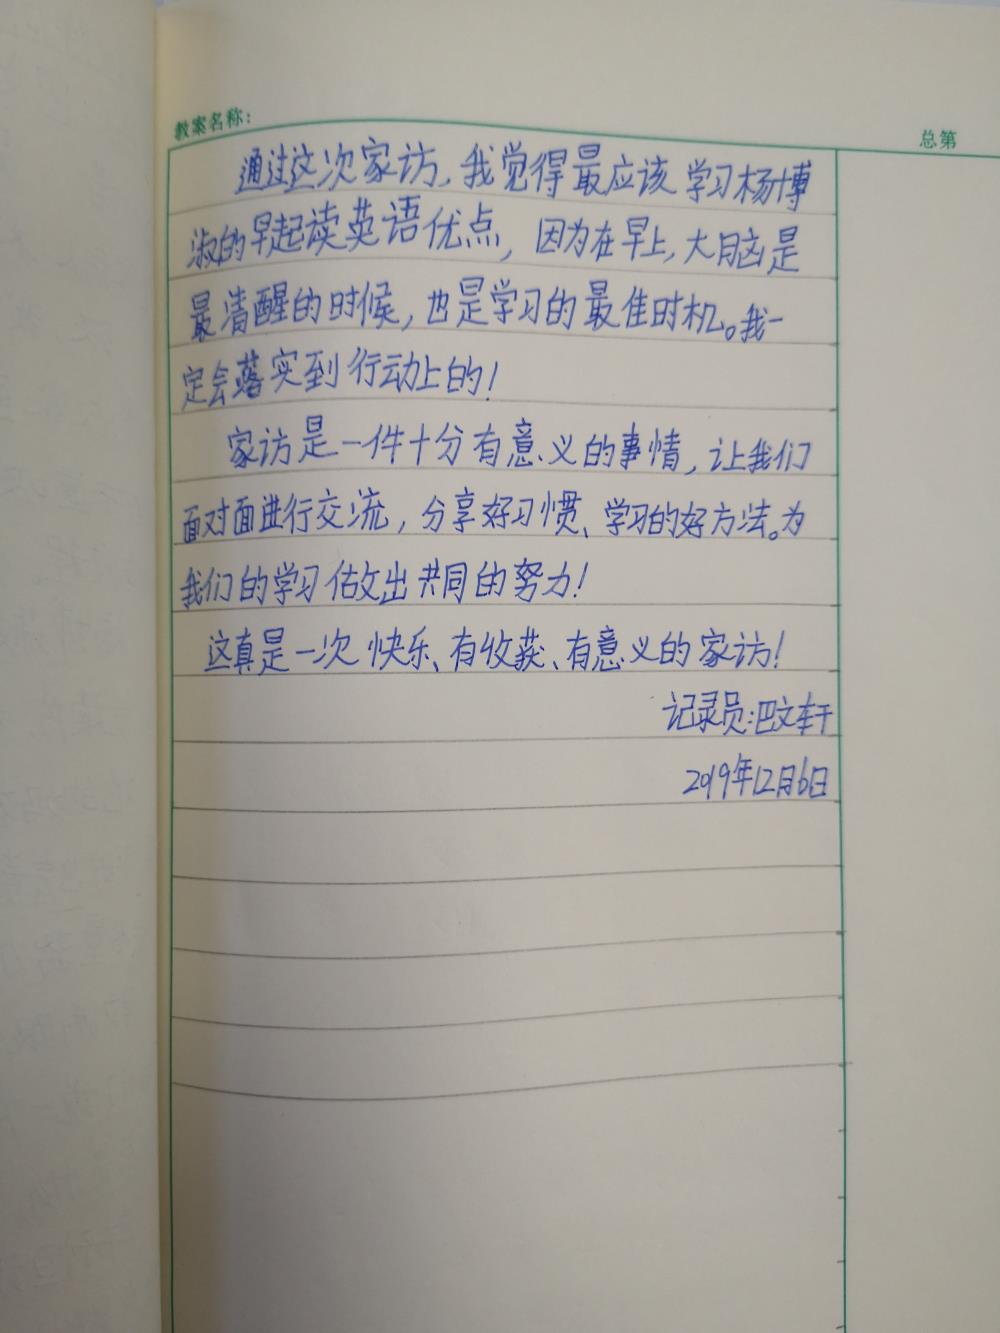 教案名称:
总第
通过这次家访，我觉得最应该学习杨博
淑的早起读英语优点，因为在早上，大脑是
最清醒的时候，也是学习的最佳时机。我一
定会落实到行动上的！
家访是一件十分有意义的事情，让我们
面对面进行交流，分享好习惯、学习的好方法。为
我们的学习做出共同的努力！
这真是一次快乐、有收获、有意义的家访！
记录员：巴文轩
2019年12月6日